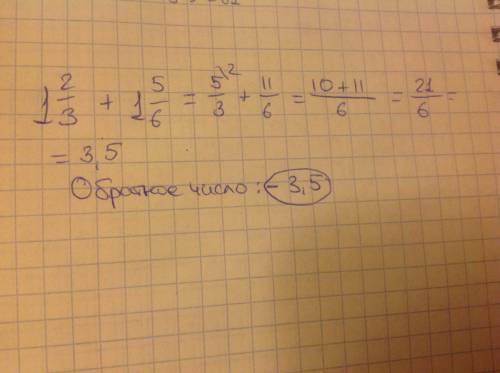 1 2/3 + 1 5/6 = 5\2/3 + 11/6 = 10+11/6 = 21/6 =
= 3,5
Обратное число: -3,5